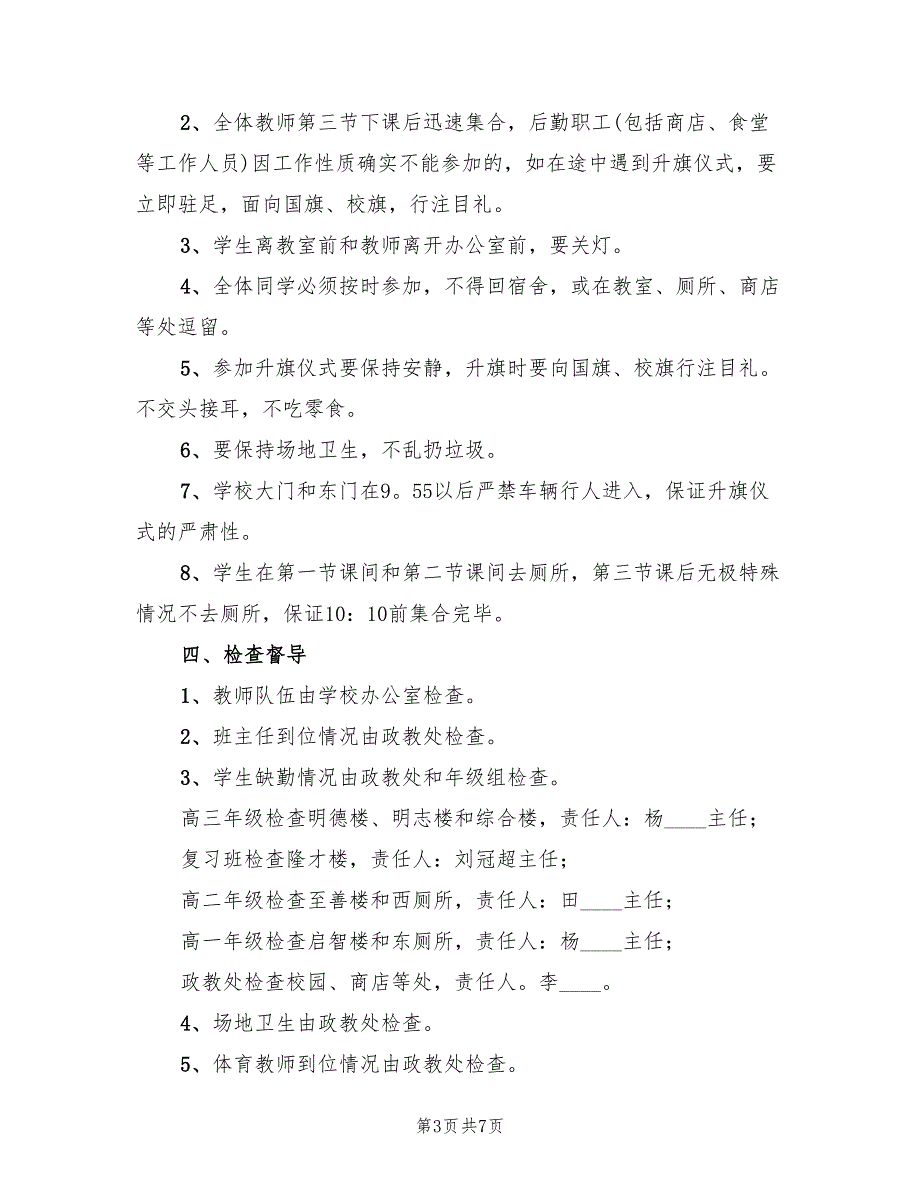 2、全体教师第三节下课后迅速集合，后勤职工(包括商店、食堂
等工作人员)因工作性质确实不能参加的，如在途中遇到升旗仪式，要
立即驻足，面向国旗、校旗，行注目礼。
3、学生离教室前和教师离开办公室前，要关灯。
4、全体同学必须按时参加，不得回宿舍，或在教室、厕所、商店
等处逗留。
5、参加升旗仪式要保持安静，升旗时要向国旗、校旗行注目礼。
不交头接耳，不吃零食。
6、要保持场地卫生，不乱扔垃圾。
7、学校大门和东门在9。55以后严禁车辆行人进入，保证升旗仪
式的严肃性。
8、学生在第一节课间和第二节课间去厕所，第三节课后无极特殊
情况不去厕所，保证10：10前集合完毕。
四、检查督导
1、教师队伍由学校办公室检查。
2、班主任到位情况由政教处检查。
3、学生缺勤情况由政教处和年级组检查。
高三年级检查明德楼、明志楼和综合楼，责任人：杨____主任；
复习班检查隆才楼，责任人：刘冠超主任；
高二年级检查至善楼和西厕所，责任人：田____主任；
高一年级检查启智楼和东厕所，责任人：杨____主任；
政教处检查校园、商店等处，责任人。李____。
4、场地卫生由政教处检查。
5、体育教师到位情况由政教处检查。
第3页共7页